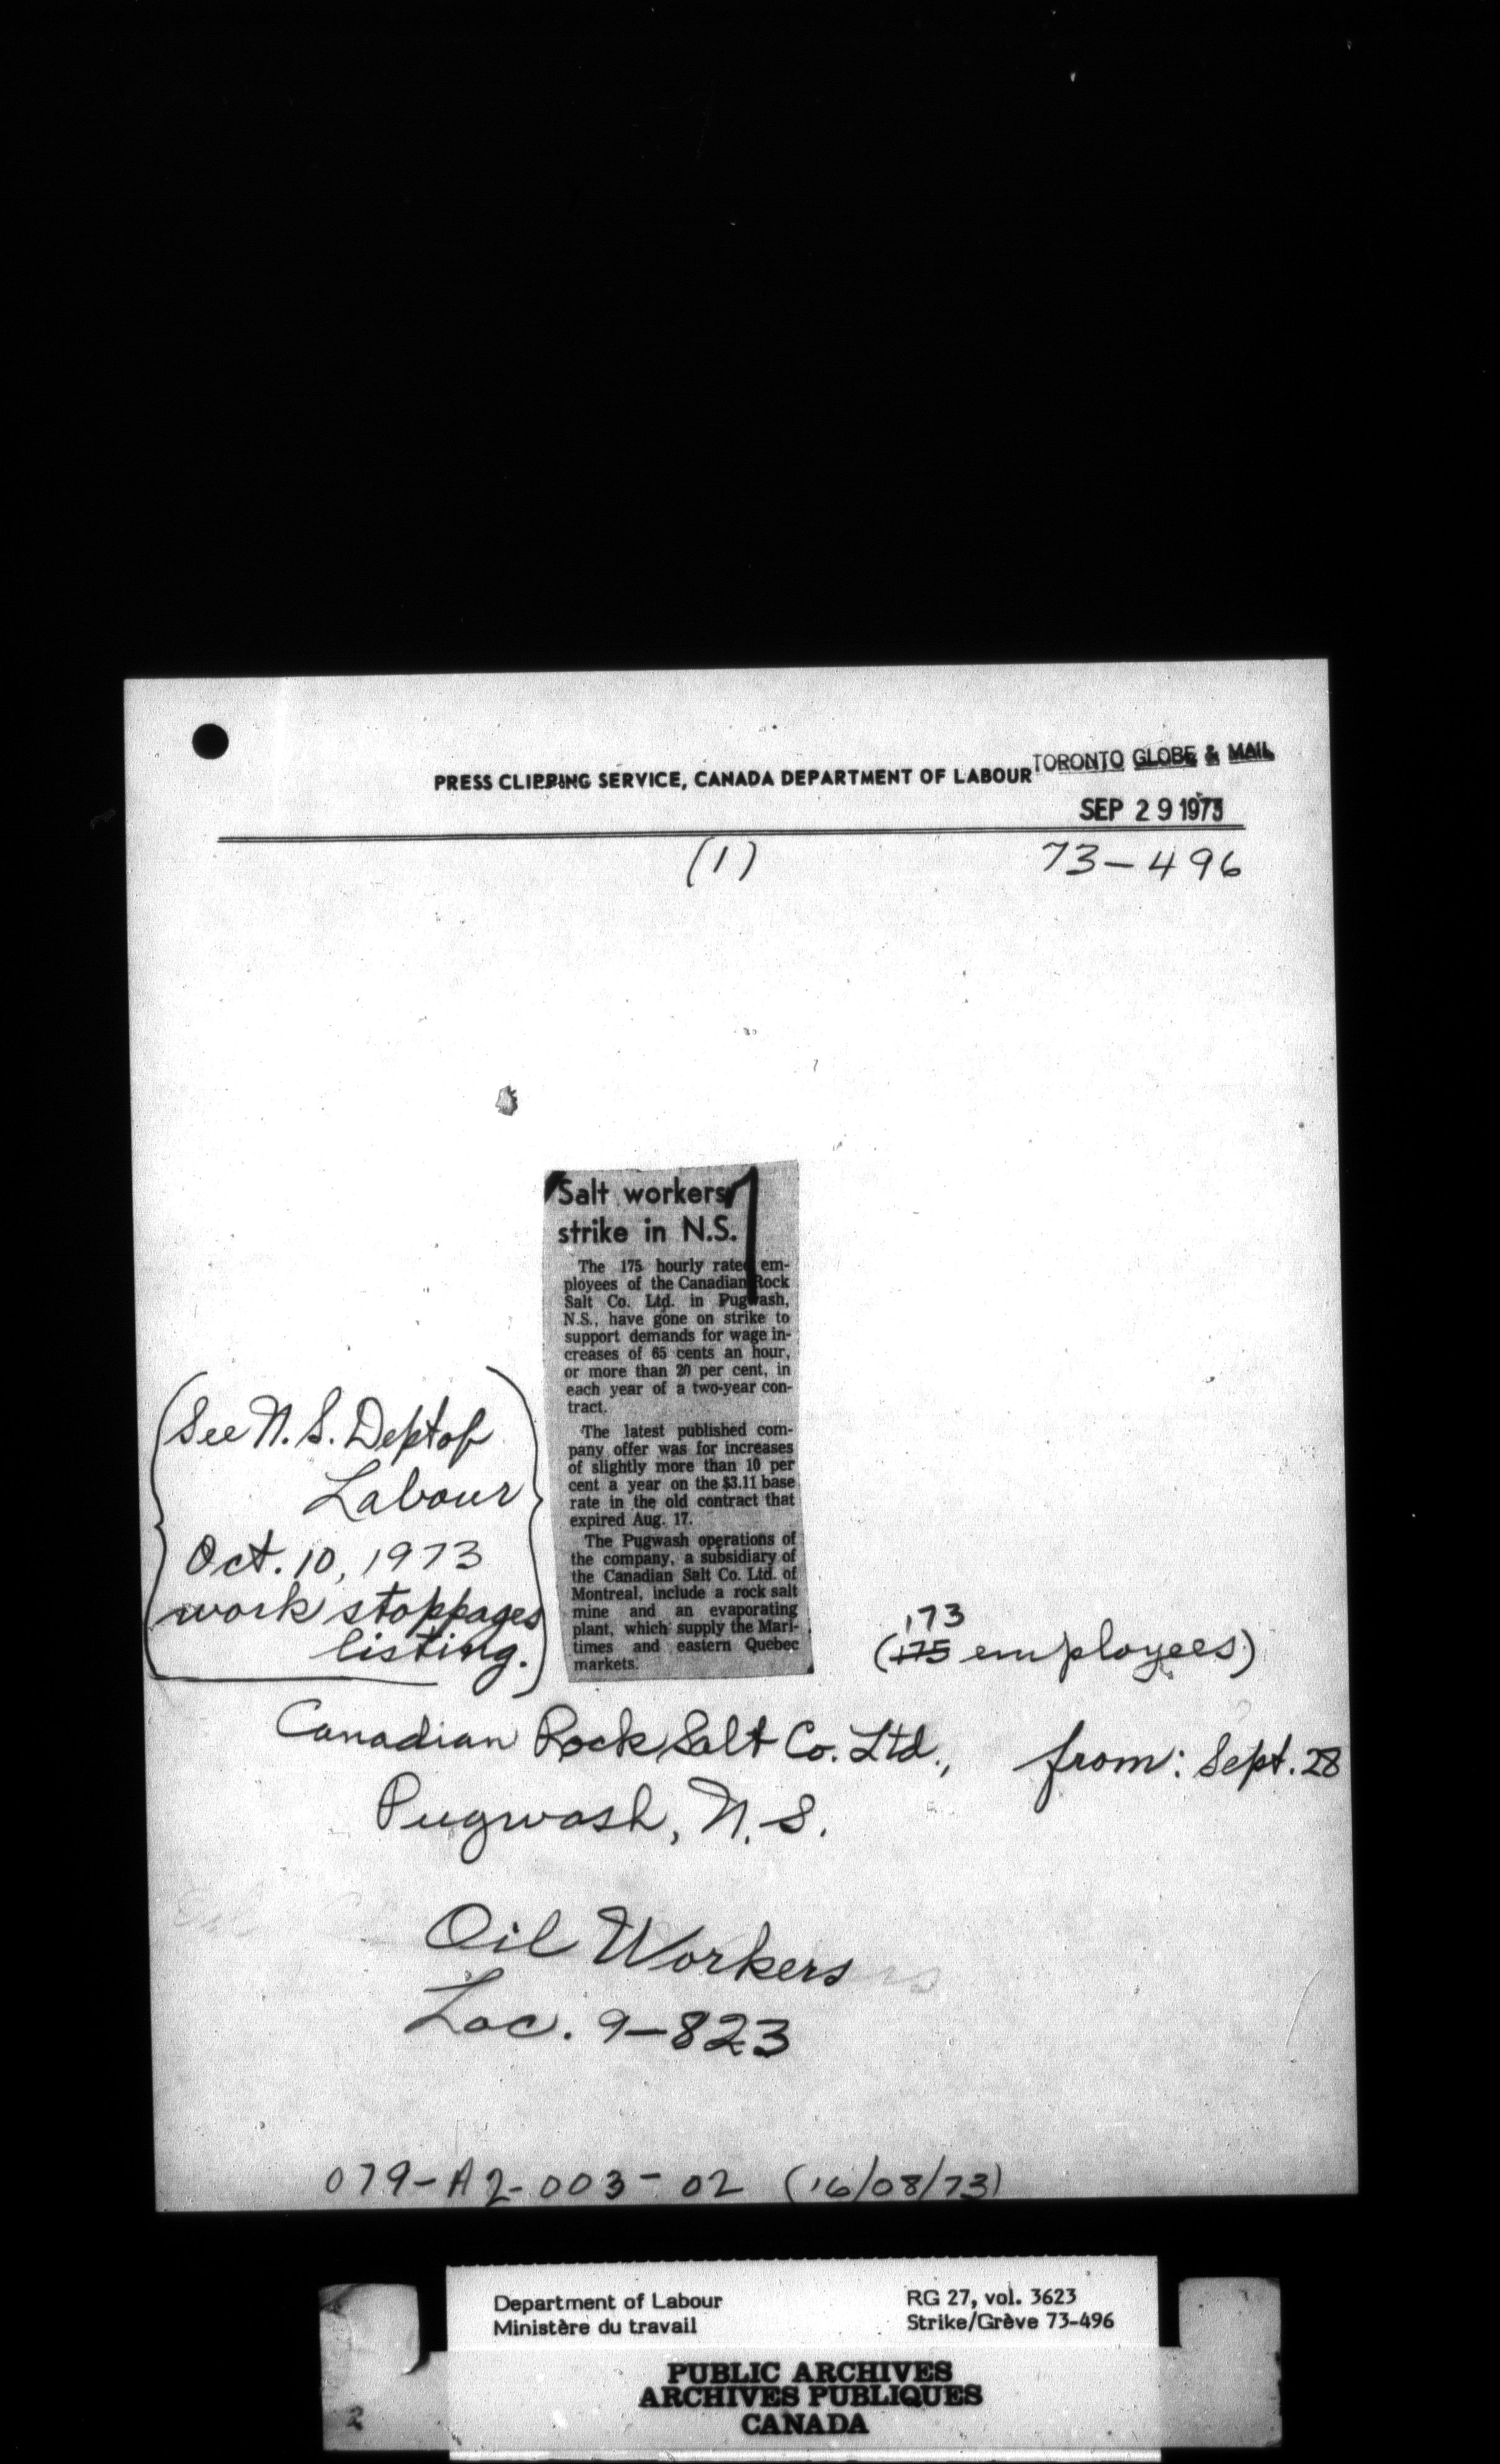 TORONTO GLOBE & MAIL
PRESS CLIPPING SERVICE, CANADA DEPARTMENT OF LABOUR
SEP 29 1973
(1)
73-496
Salt workers
strike in N.S.
The 175 hourly rated em-
ployees of the Canadian Rock
Salt Co. Ltd. in Pugwash,
N.S., have gone on strike to
support demands for wage in-
creases of 65 cents an hour,
or more than 20 per cent, in
each year of a two-year con-
tract.
The latest published com-
pany offer was for increases
of slightly more than 10 per
cent a year on the $3.11 base
rate in the old contract that
expired Aug. 17.
The Pugwash operations of
the company, a subsidiary of
the Canadian Salt Co. Ltd. of
Montreal, include a rock salt
mine and an evaporating
plant, which supply the Mari-
times and eastern Quebec
markets.
(See N.S. Dept of
Labour
Oct. 10, 1973
work stoppages
listing.)
173
(175 employees)
Canadian Rock Salt Co. Ltd.,
from: Sept. 28
Pugwash, N.S.
Oil Workers
Loc. 9-823
079-A2-003-02 (16/08/73)
Department of Labour
Ministère du travail
RG 27, vol. 3623
Strike/Grève 73-496
PUBLIC ARCHIVES
ARCHIVES PUBLIQUES
CANADA
2